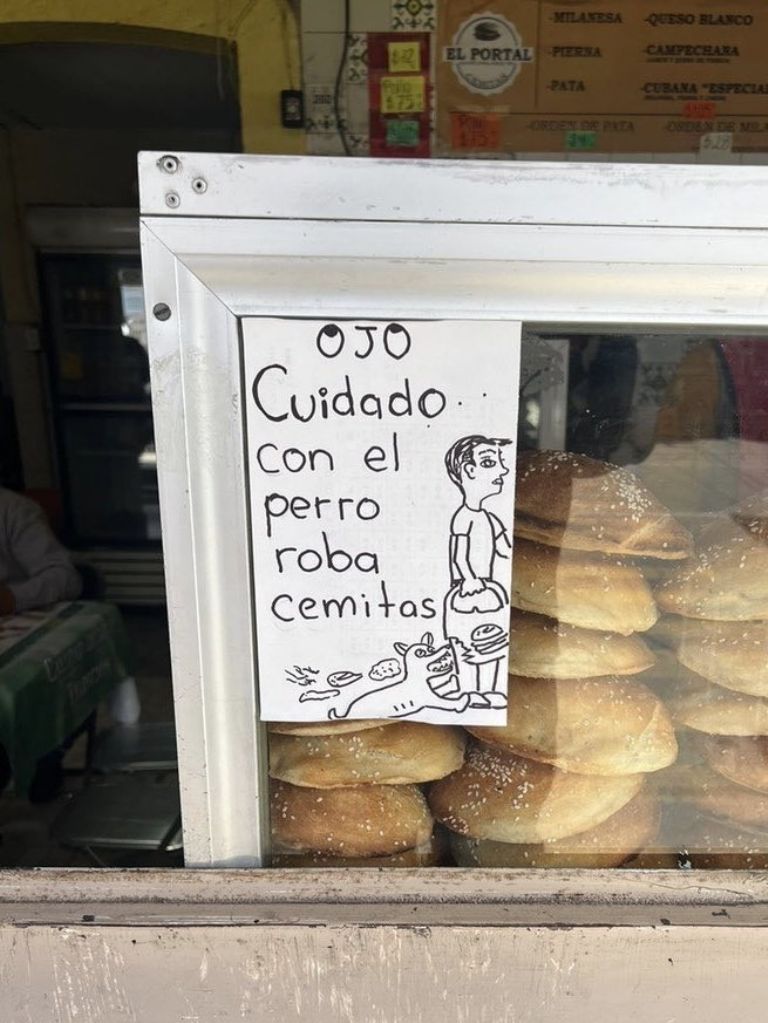 $12
$75
EL PORTAL
-MILANESA
-PIERNA
-PATA
-ORDEN DE PATA
-QUESO BLANCO
-CAMPECHANA
-CUBANA "ESPECIA
-ORDEN DE MILA
$28
OJO
Cuidado..
con el
perro
roba
cemitas